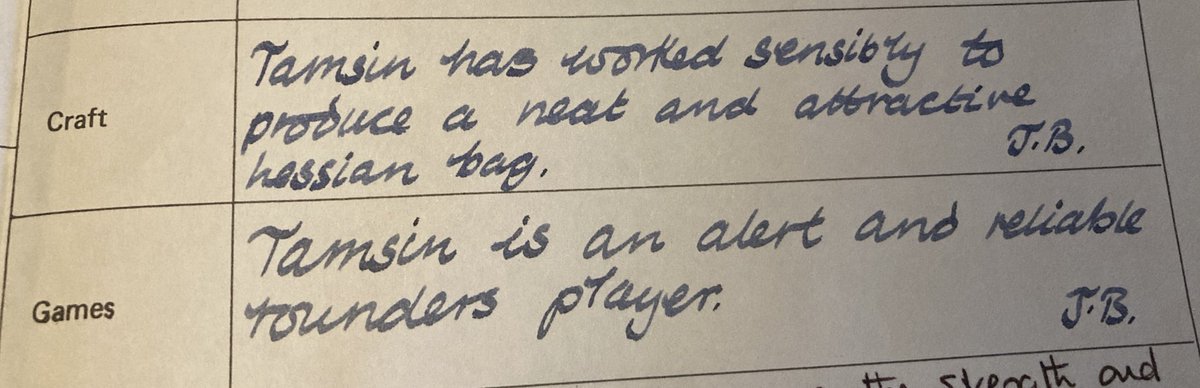 Craft
Tamsin has worked sensibly to
produce a neat and attractive
hessian bag. J.B.
Games
Tamsin is an alert and reliable
rounders player. J.B.
strength and